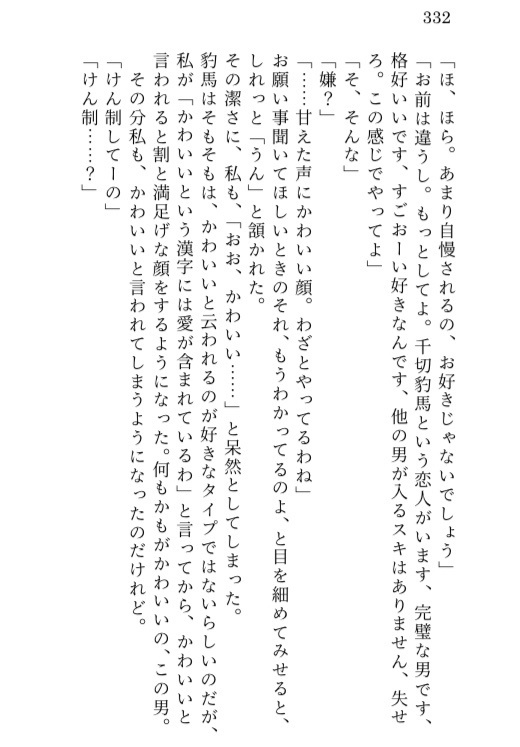 332
「ほ、ほら。あまり自慢されるの、お好きじゃないでしょう」
「お前は違うし。もっとしてよ。千切豹馬という恋人がいます、完璧な男です、
格好いいです、すごおーい好きなんです、他の男が入るスキはありません、失せ
ろ。この感じでやってよ」
「そ、そんな」
「嫌？」
「……甘えた声にかわいい顔。わざとやってるわね」
お願い事聞いてほしいときのそれ、もうわかってるのよ、と目を細めてみせると、
しれっと「うん」と頷かれた。
その潔さに、私も、「おお、かわいい……」と呆然としてしまった。
豹馬はそもそもは、かわいいと云われるのが好きなタイプではないらしいのだが、
私が「かわいいという漢字には愛が含まれているわ」と言ってから、かわいいと
言われると割と満足げな顔をするようになった。何もかもがかわいいの、この男。
その分私も、かわいいと言われてしまうようになったのだけれど。
「けん制してーの」
「けん制……？」